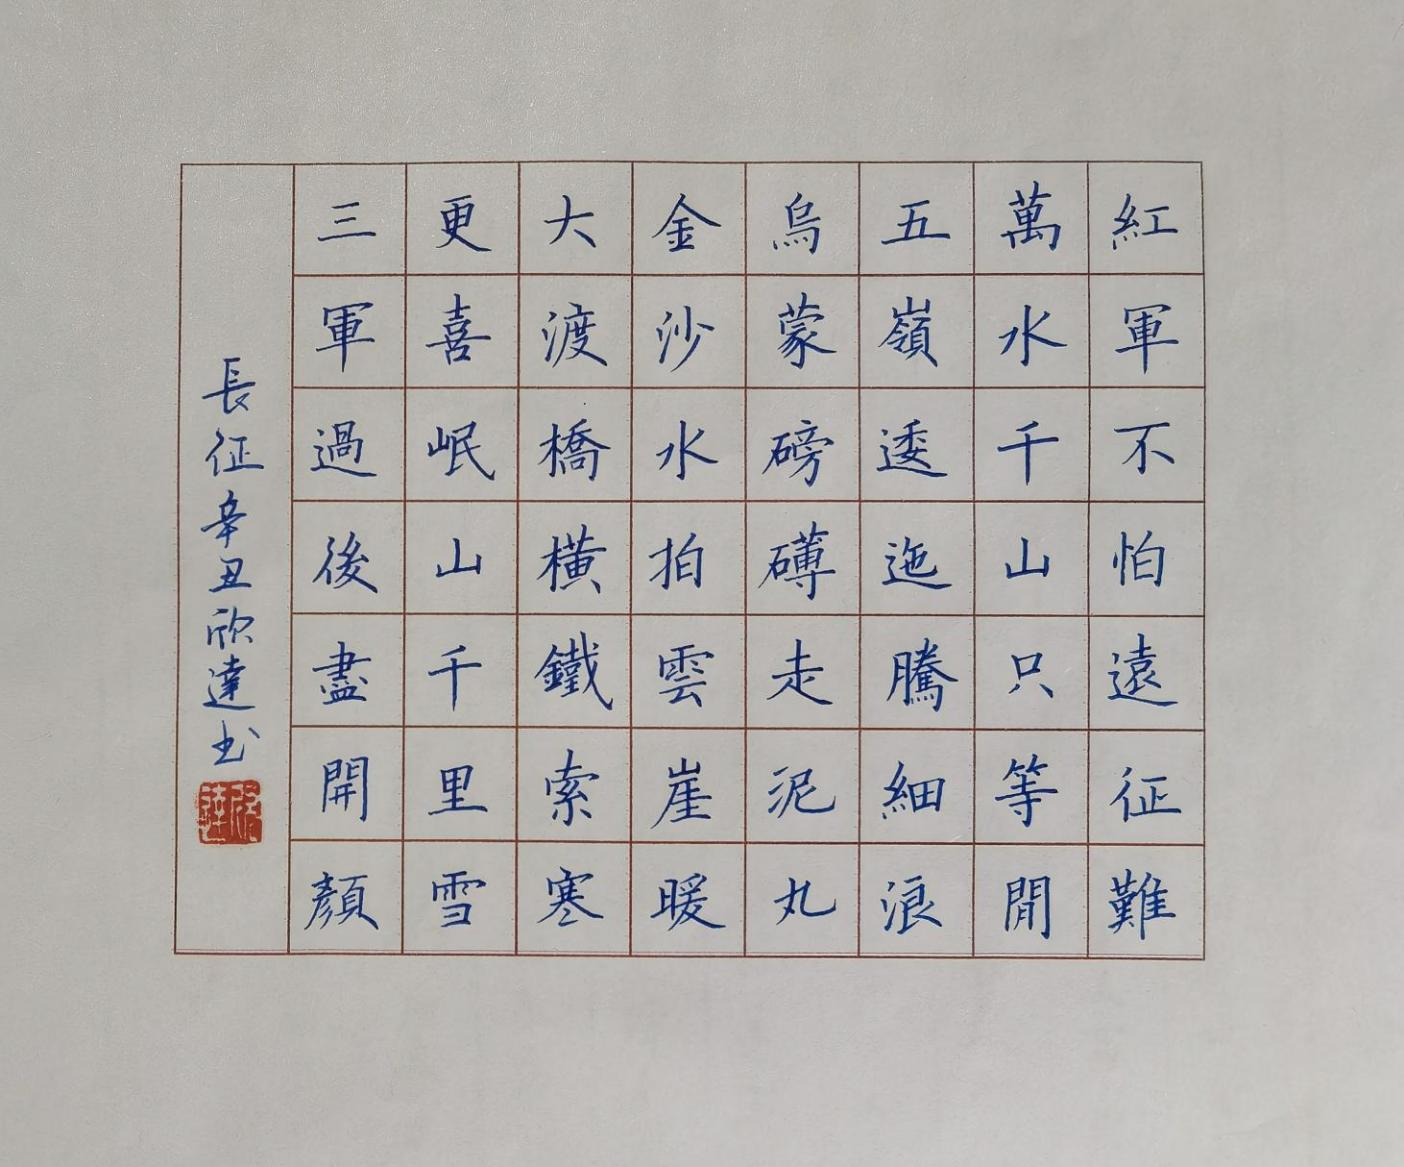 紅軍不怕遠征難
萬水千山只等閒
五嶺逶迤騰細浪
烏蒙磅礴走泥丸
金沙水拍雲崖暖
大渡橋橫鐵索寒
更喜岷山千里雪
三軍過後盡開顏
長征辛丑欣達书